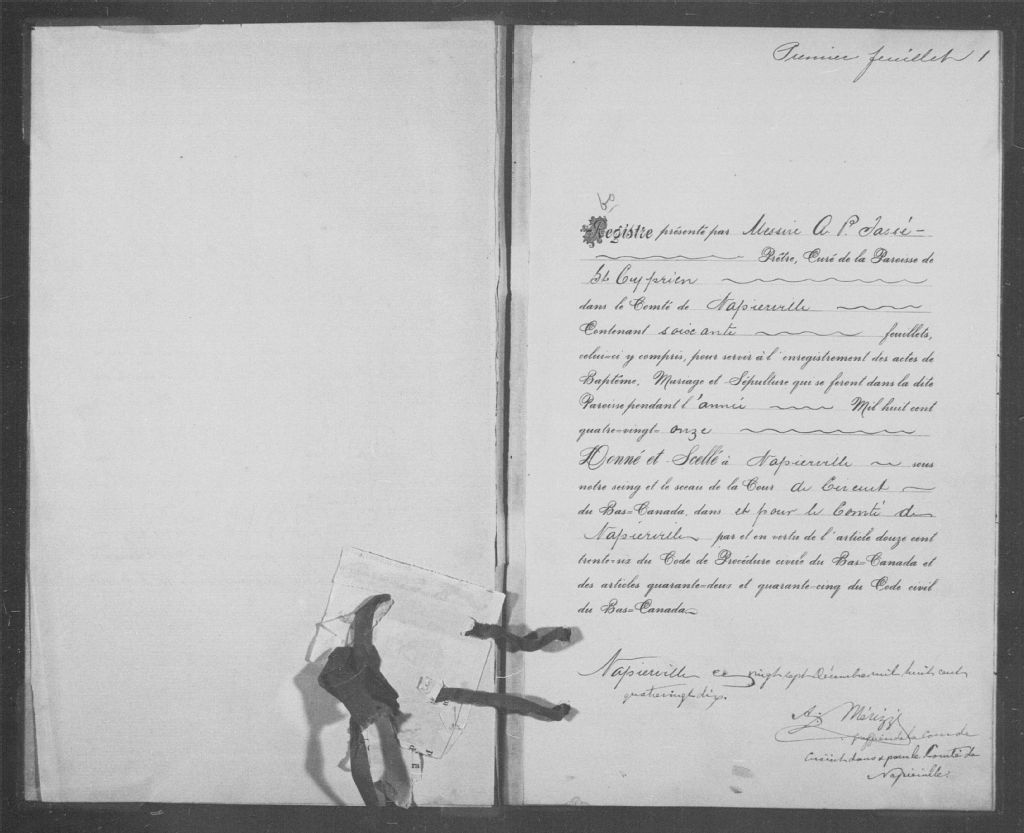 Premier feuillet 1
Registre présenté par Messire A P. Tassé
Prêtre, Curé de la Paroisse de
St Cyprien
dans le Comté de Napierville
Contenant soixante feuillets,
celui=ci y compris, pour servir à l'enregistrement des actes de
Baptême, Mariage et Sépulture qui se feront dans la dite
Paroisse pendant l'année Mil huit cent
quatre=vingt= onze
Donné et Scellé à Napierville sous
notre seing et le sceau de la Cour de Circuit
du Bas=Canada, dans et pour le Comté de
Napierville par et en vertu de l'article douze cent
trente=six du Code de Procédure civile du Bas=Canada et
des articles quarante=deux et quarante=cinq du Code civil
du Bas=Canada
Napierville ce vingt sept Décembre mil huit cent
quatrevingt dix.
A. Mérizzi
greffier de la Cour de
Circuit dans & pour le Comté de
Napierville.
13